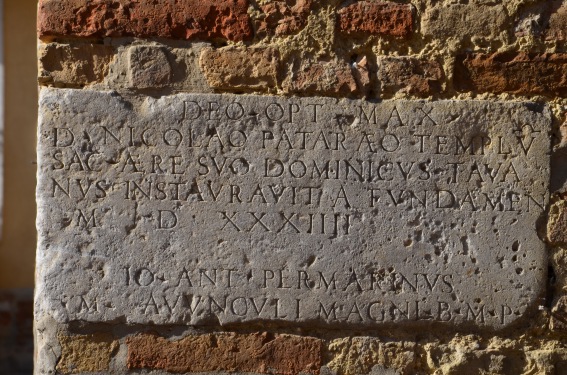 DEO·OPT·MAX·
D·NICOLAO PATARAO TEMPLV̄
SAC·ÆRE SVO DOMINICVS·TAVA
NVS·INSTAVRAVIT A FVNDAMEN
M D XXXIIII
IO·ANT PERMARINVS
M AVVNCVLI MAGNI·B·M·P